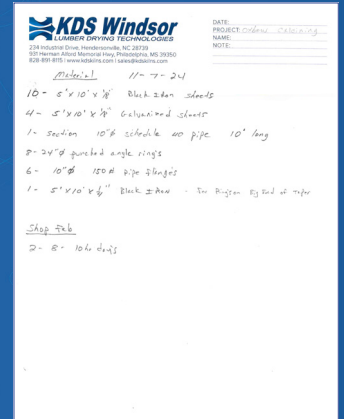 KDS Windsor
LUMBER DRYING TECHNOLOGIES
234 Industrial Drive, Hendersonville, NC 28739
931 Herman Alford Memorial Hwy, Philadelphia, MS 39350
828-891-8115 | www.kdskilns.com | sales@kdskilns.com
DATE:
PROJECT:
NAME:
NOTE:
Material 11-7-24
10 - 5'x10' x 1/8" Black Iron sheets
4 - 5'x10' x 1/8" Galvanized sheets
1 - Section 10"ø schedule 40 pipe 10' long
8 - 24"ø punched angle rings
6 - 10"ø 150# pipe flanges
1 - 5'x10' x Black Iron - For Rings on Big End of Taper
Shop Fab
2 - 8 - 10 hr days